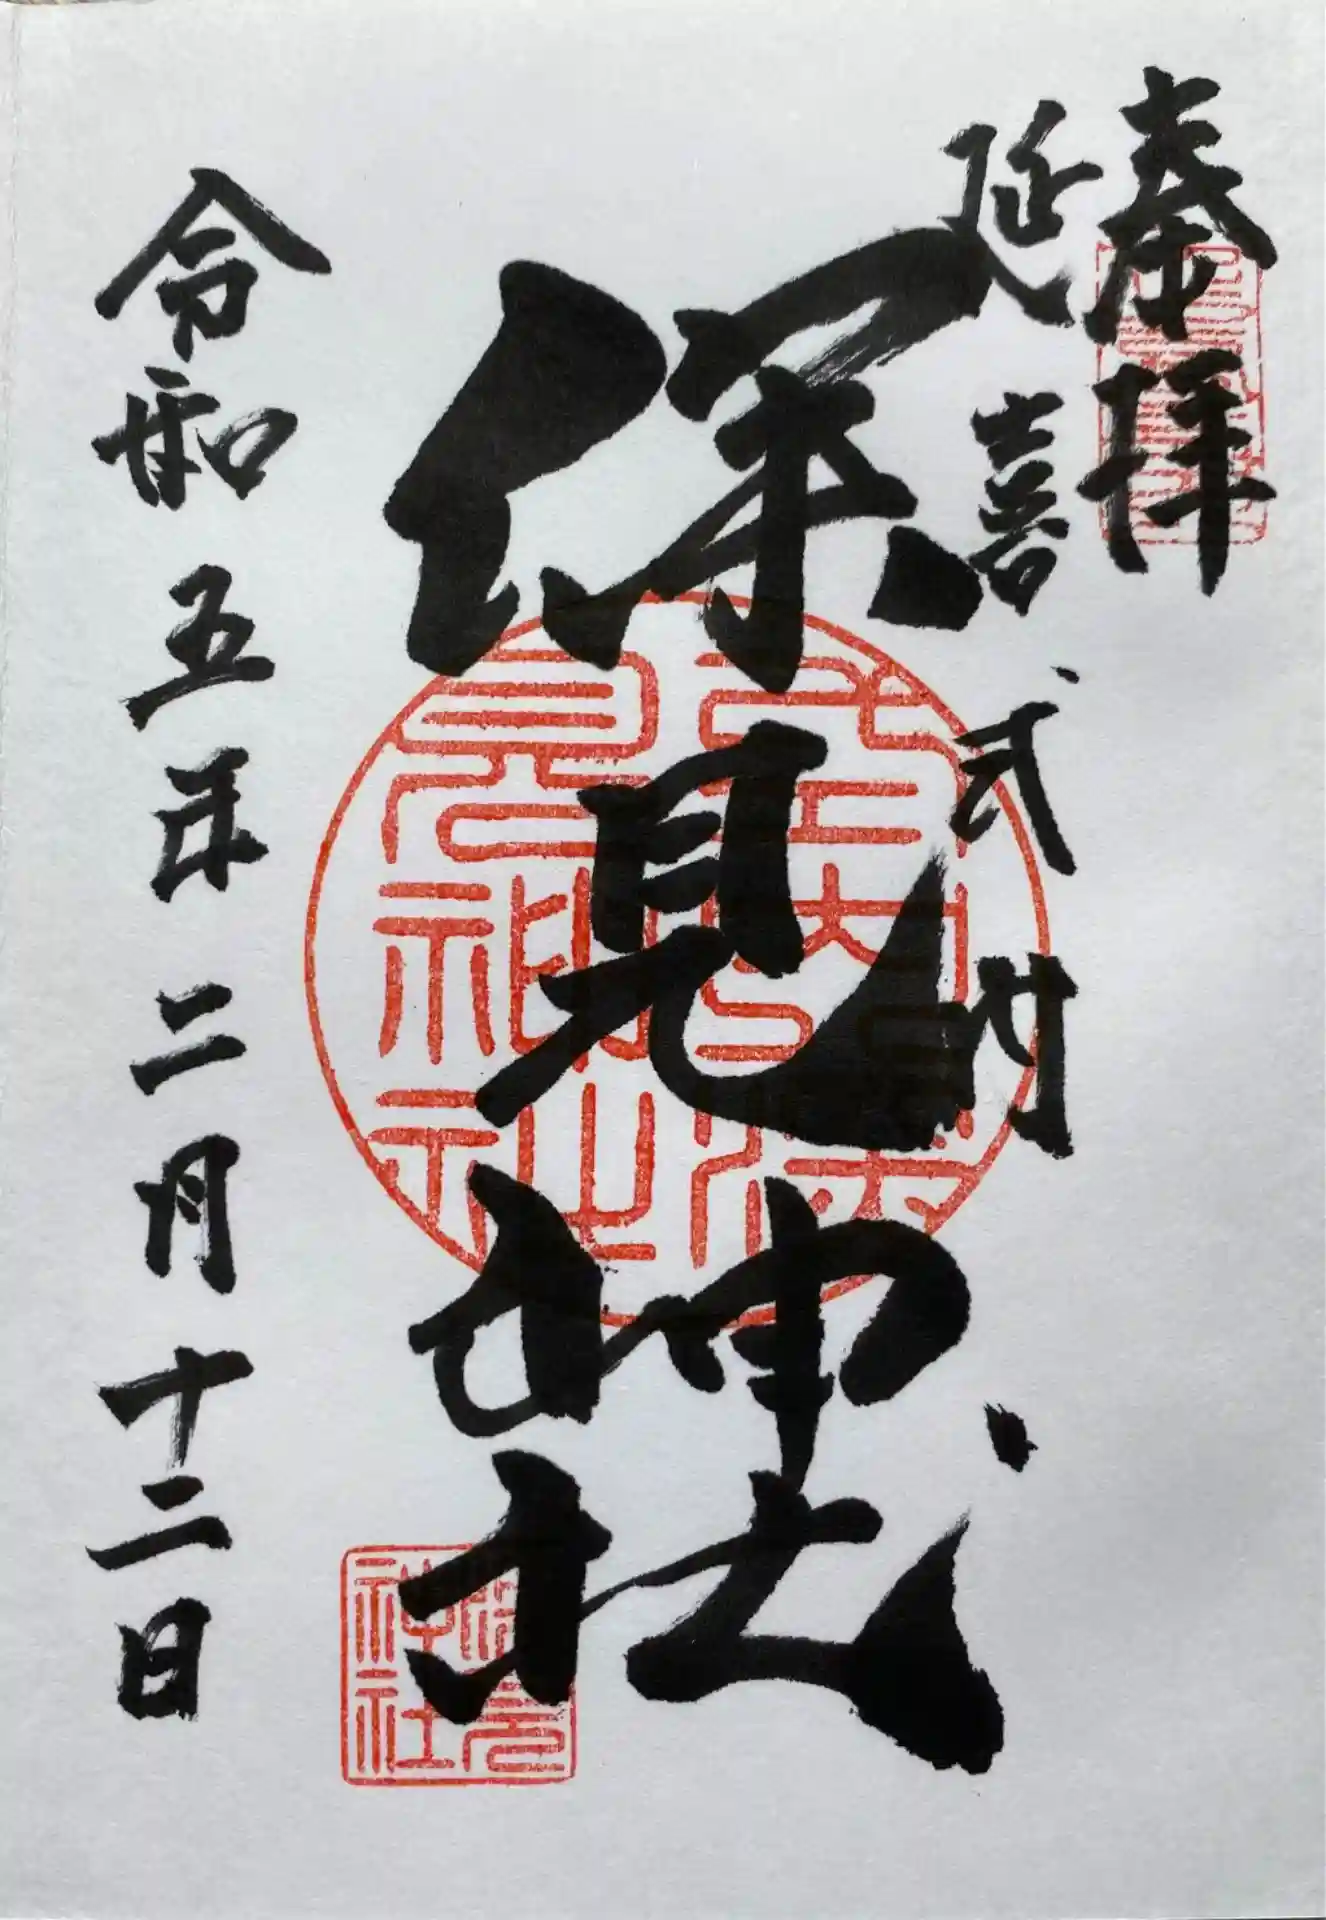 奉拝
延喜式内
深見神社
令和五年二月十二日
深見神社